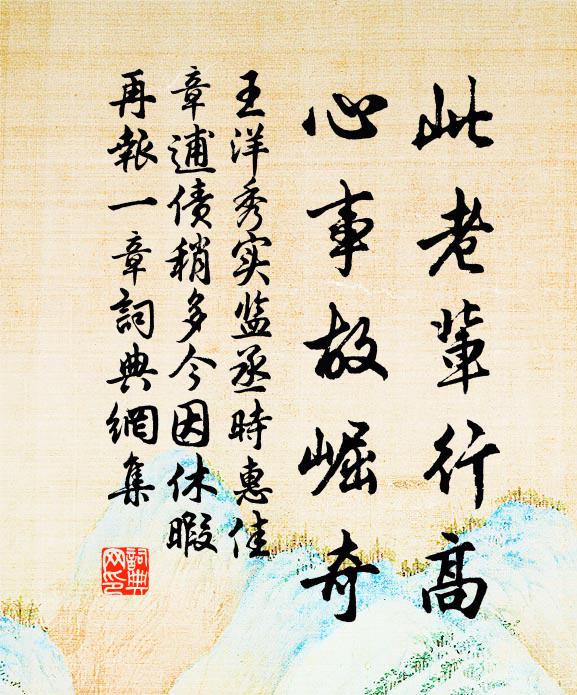 此老辈行高
心事故崛奇
王洋秀实监丞時惠佳
章逋债稍多今因休暇
再報一章詞典網集
詞典
网印